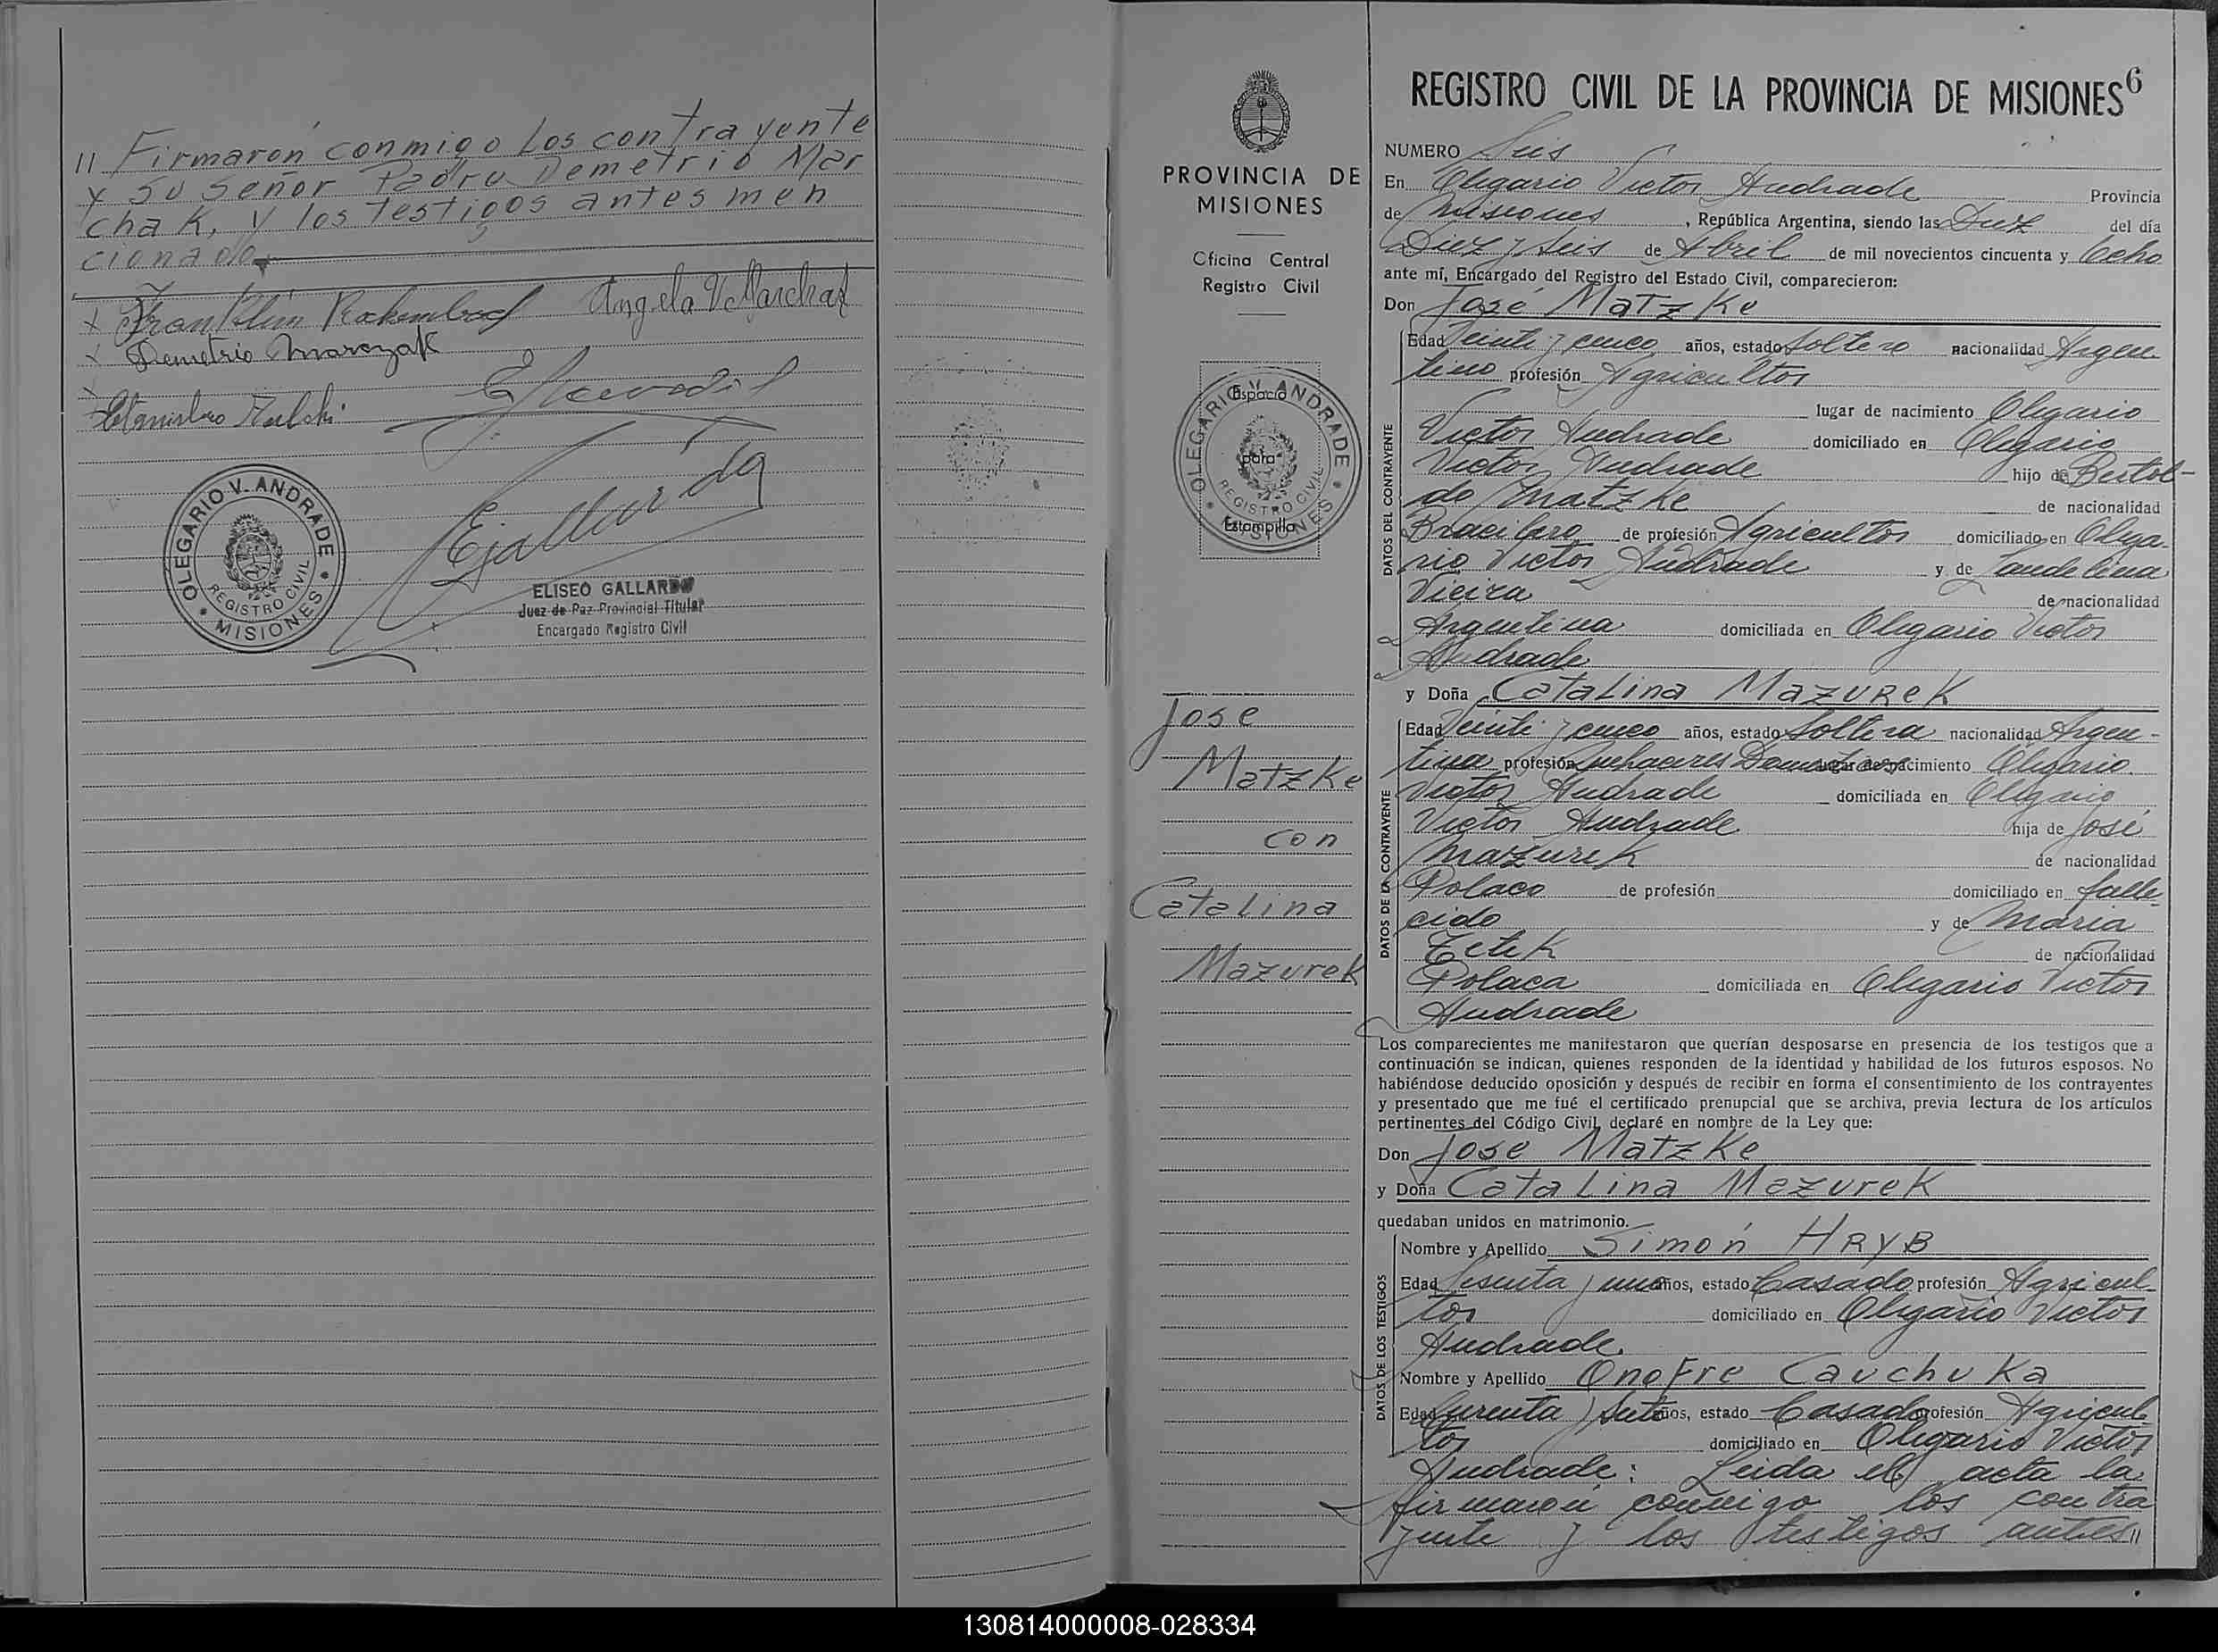 // Firmarón conmigo Los contrayente
y su señor Padre Demetrio Mar
chak, y los testigos antes men
cionado
x Franklin Rockembach Angela V Marchak
x Demetrio Marczak
x Estanislao
OLEGARIO V. ANDRADE
REGISTRO CIVIL
* MISIONES *
ELISEO GALLARDO
Juez de Paz Provincial Titular
Encargado Registro Civil
PROVINCIA DE
MISIONES
Oficina Central
Registro Civil
OLEGARIO V. ANDRADE
REGISTRO CIVIL
* MISIONES *
Espacio
para
Estampilla
Jose
Matzke
con
Catalina
Mazurek
REGISTRO CIVIL DE LA PROVINCIA DE MISIONES 6
NUMERO Seis
En Olegario Victor Andrade Provincia
de Misiones, República Argentina, siendo las Diez del día
Diez y Seis de Abril de mil novecientos cincuenta y Ocho
ante mí, Encargado del Registro del Estado Civil, comparecieron:
Don José Matzke
DATOS DEL CONTRAYENTE
Edad Veinti y cinco años, estado Soltero nacionalidad Argen
tino profesión Agricultor
lugar de nacimiento Olegario
Victor Andrade domiciliado en Olegario
Victor Andrade hijo de Bertol-
do Matzke de nacionalidad
Bracilero de profesión Agricultor domiciliado en Olega-
rio Victor Andrade y de Laudelina
Vieira de nacionalidad
Argentina domiciliada en Olegario Victor
Andrade
y Doña Catalina Mazurek
DATOS DE LA CONTRAYENTE
Edad Veinti y cinco años, estado Soltera nacionalidad Argen-
tina profesión Quehaceres Domesticos lugar de nacimiento Olegario
Victor Andrade domiciliada en Olegario
Victor Andrade hija de José
Mazurek de nacionalidad
Polaco de profesión domiciliado en falle-
cido y de Maria
de nacionalidad
Polaca domiciliada en Olegario Victor
Andrade
Los comparecientes me manifestaron que querían desposarse en presencia de los testigos que a
continuación se indican, quienes responden de la identidad y habilidad de los futuros esposos. No
habiéndose deducido oposición y después de recibir en forma el consentimiento de los contrayentes
y presentado que me fué el certificado prenupcial que se archiva, previa lectura de los artículos
pertinentes del Código Civil, declaré en nombre de la Ley que:
Don Jose Matzke
y Doña Catalina Mazurek
quedaban unidos en matrimonio.
DATOS DE LOS TESTIGOS
Nombre y Apellido Simón HRYB
Edad Sesenta y un años, estado Casado profesión Agricul-
tor domiciliado en Olegario Victor
Andrade.
Nombre y Apellido Onofre Cauchuka
Edad Curenta y Siete años, estado Casado profesión Agricul-
tor domiciliado en Olegario Victor
Andrade: Leida el acta la
firmarón conmigo los contra
yente y los testigos antes //
130814000008-028334